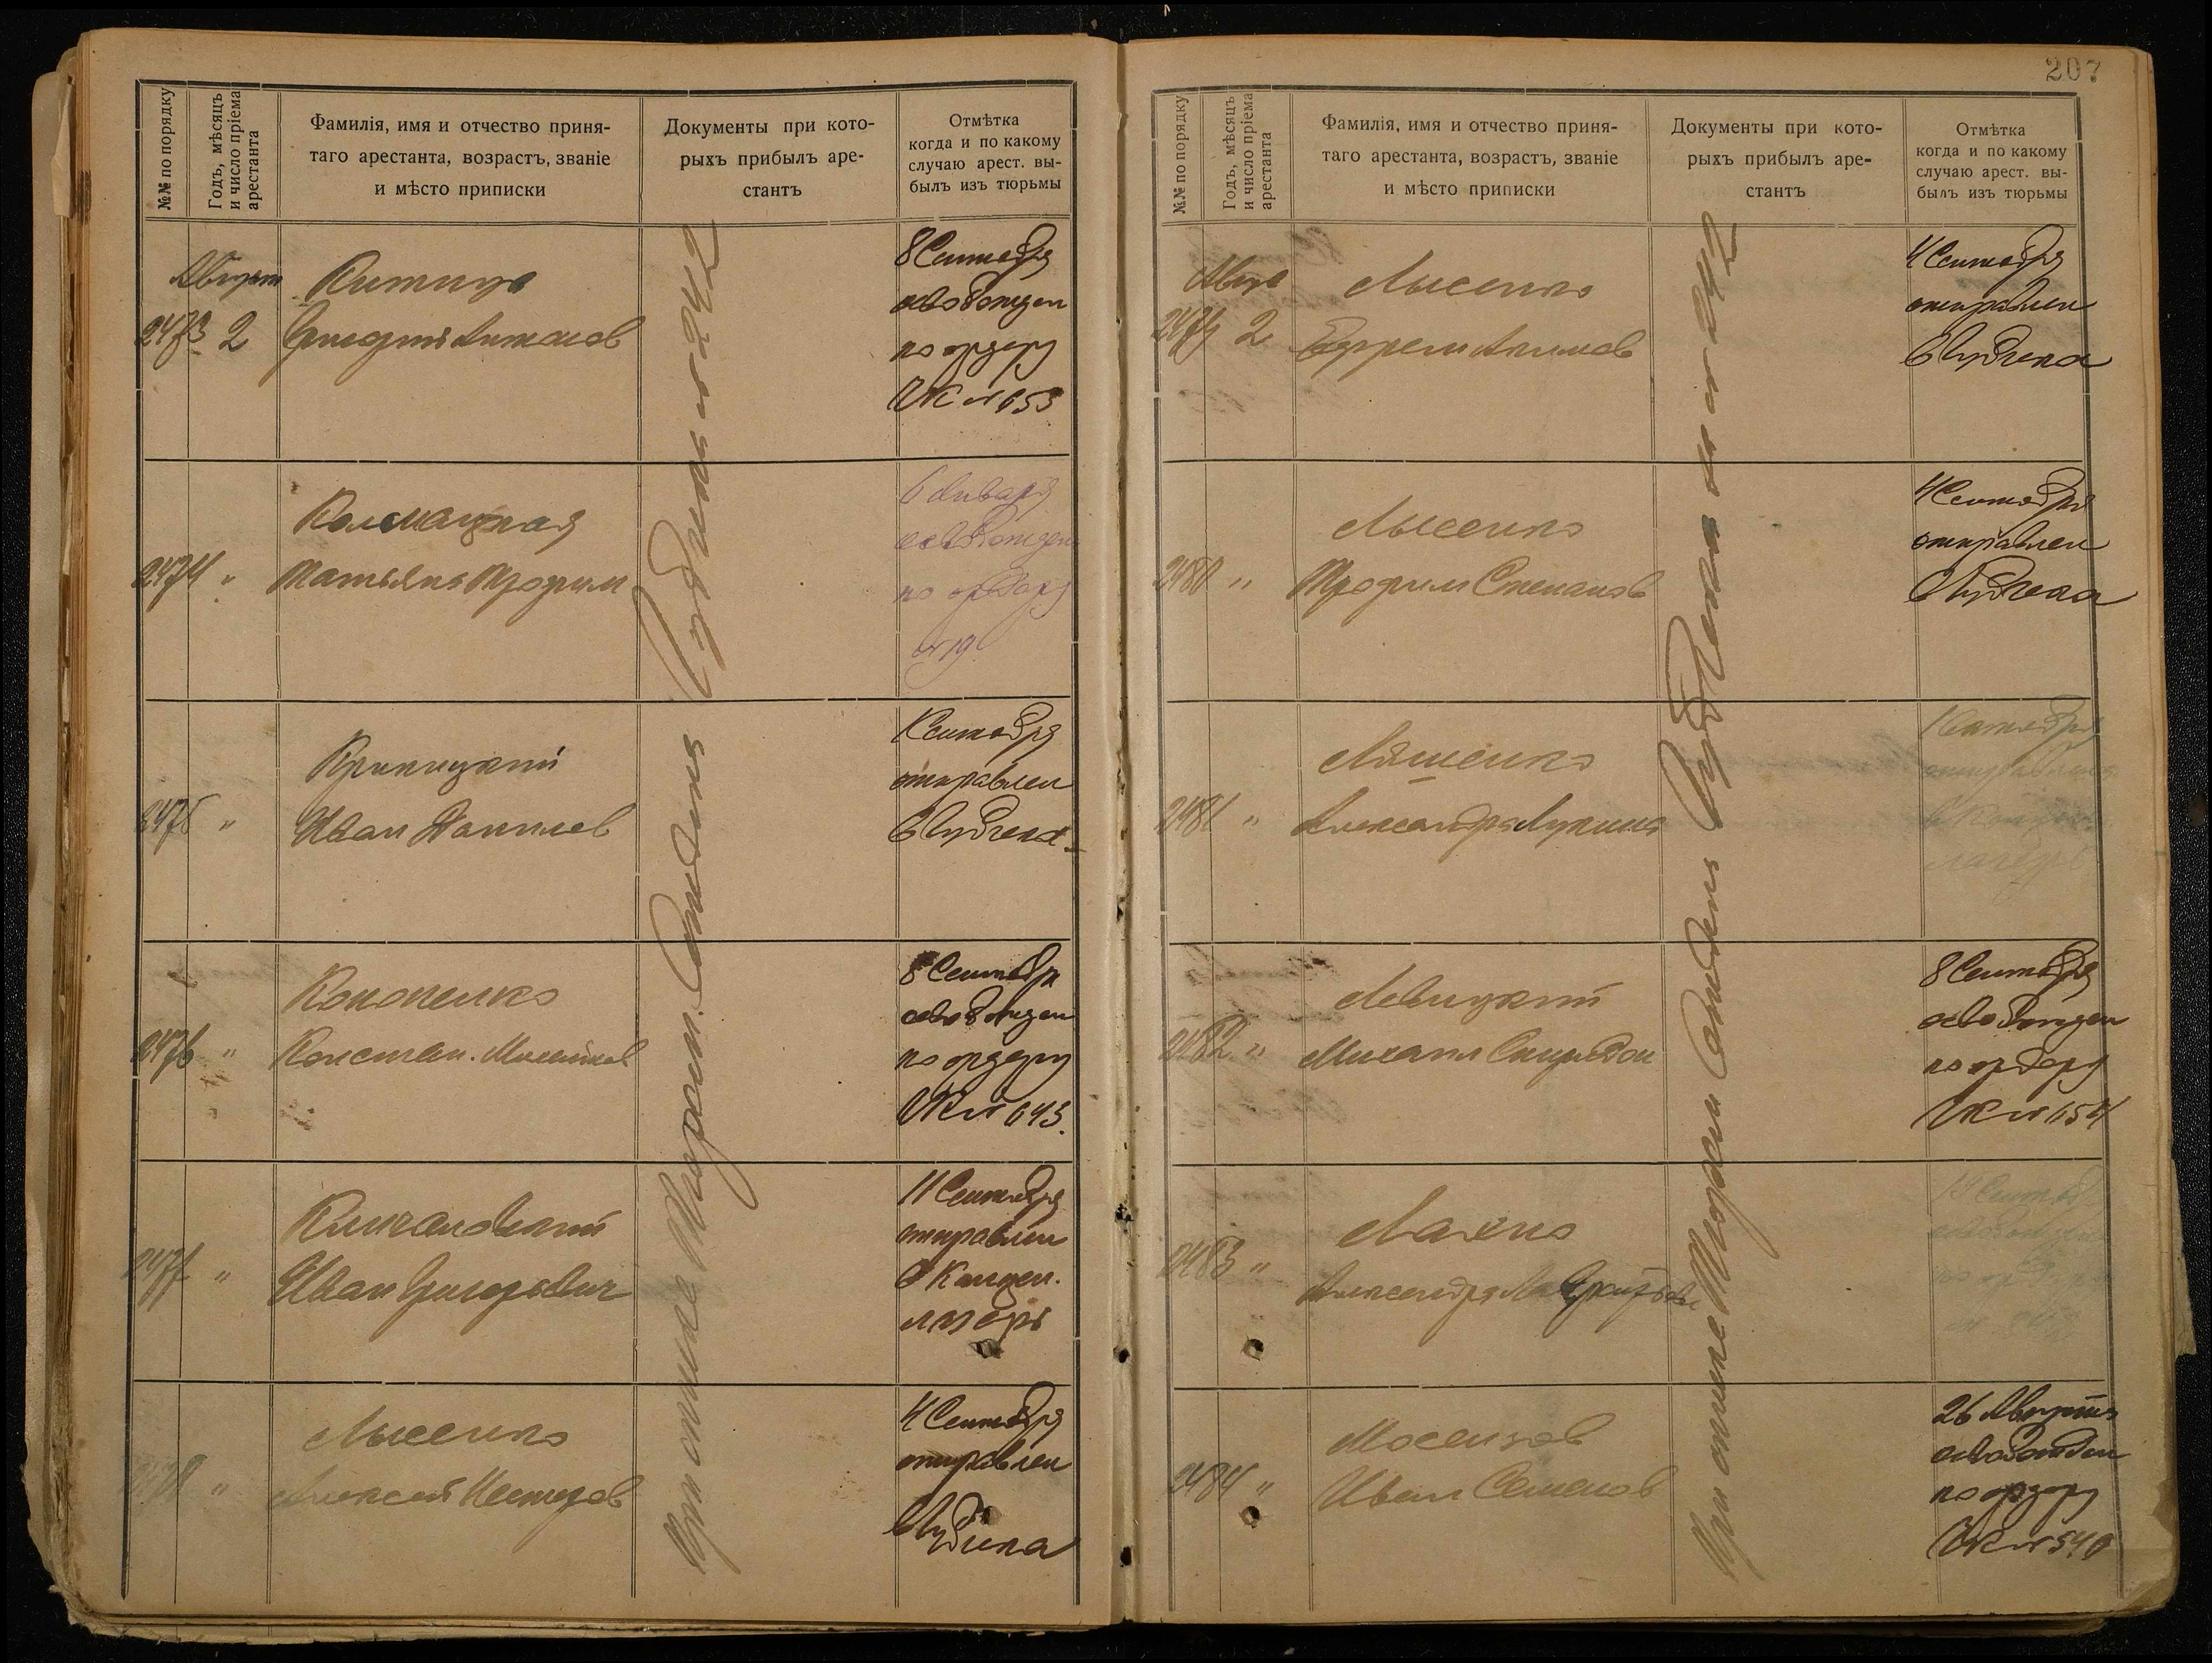 №№ по порядку
Годъ, мѣсяцъ
и число пріема
арестанта
Фамилія, имя и отчество приня-
таго арестанта, возрастъ, званіе
и мѣсто приписки
Документы при кото-
рыхъ прибылъ аре-
стантъ
Отмѣтка
когда и по какому
случаю арест. вы-
былъ изъ тюрьмы
Август
2473 2
Григорий
8 Сентября
освобожден
по ордеру
ЧК № 653
2474 "
Татьяна Трофим
6 Января
освобожден
по ордеру
№ 19
2475 "
Криницкий
Иван Данилов
Сентября
отправлен
в Губчека
2476 "
Кононенко
Констан. Моисеев
8 Сентября
освобожден
по ордеру
ЧК № 643.
2477 "
Иван Григорьевич
11 Сентября
отправлен
в Концен.
лагерь
"
Лысенко
Алексей Нестеров
4 Сентября
отправлен
в Губчека
При отноше Тюрьм. Отдела Губчека № 242
207
№№ по порядку
Годъ, мѣсяцъ
и число пріема
арестанта
Фамилія, имя и отчество приня-
таго арестанта, возрастъ, званіе
и мѣсто приписки
Документы при кото-
рыхъ прибылъ аре-
стантъ
Отмѣтка
когда и по какому
случаю арест. вы-
былъ изъ тюрьмы
Авгус
2479 2
Лысенко
Ефрем Акимов
4 Сентября
отправлен
в Губчека
2480 "
Лысенко
Трофим Степанов
4 Сентября
отправлен
в Губчека
2481 "
Ляшенко
Александра Лукина
Сентября
лагерь
2482 "
Левицкий
Михаил Спиридон
8 Сентября
освобожден
по ордеру
ЧК № 654
2483 "
Лахно
Александра
13 Сентябр
2484 "
Иван Семенов
26 Августа
освобожден
по ордеру
ЧК № 540
При отноше Тюрем Отдела Губчека № 242